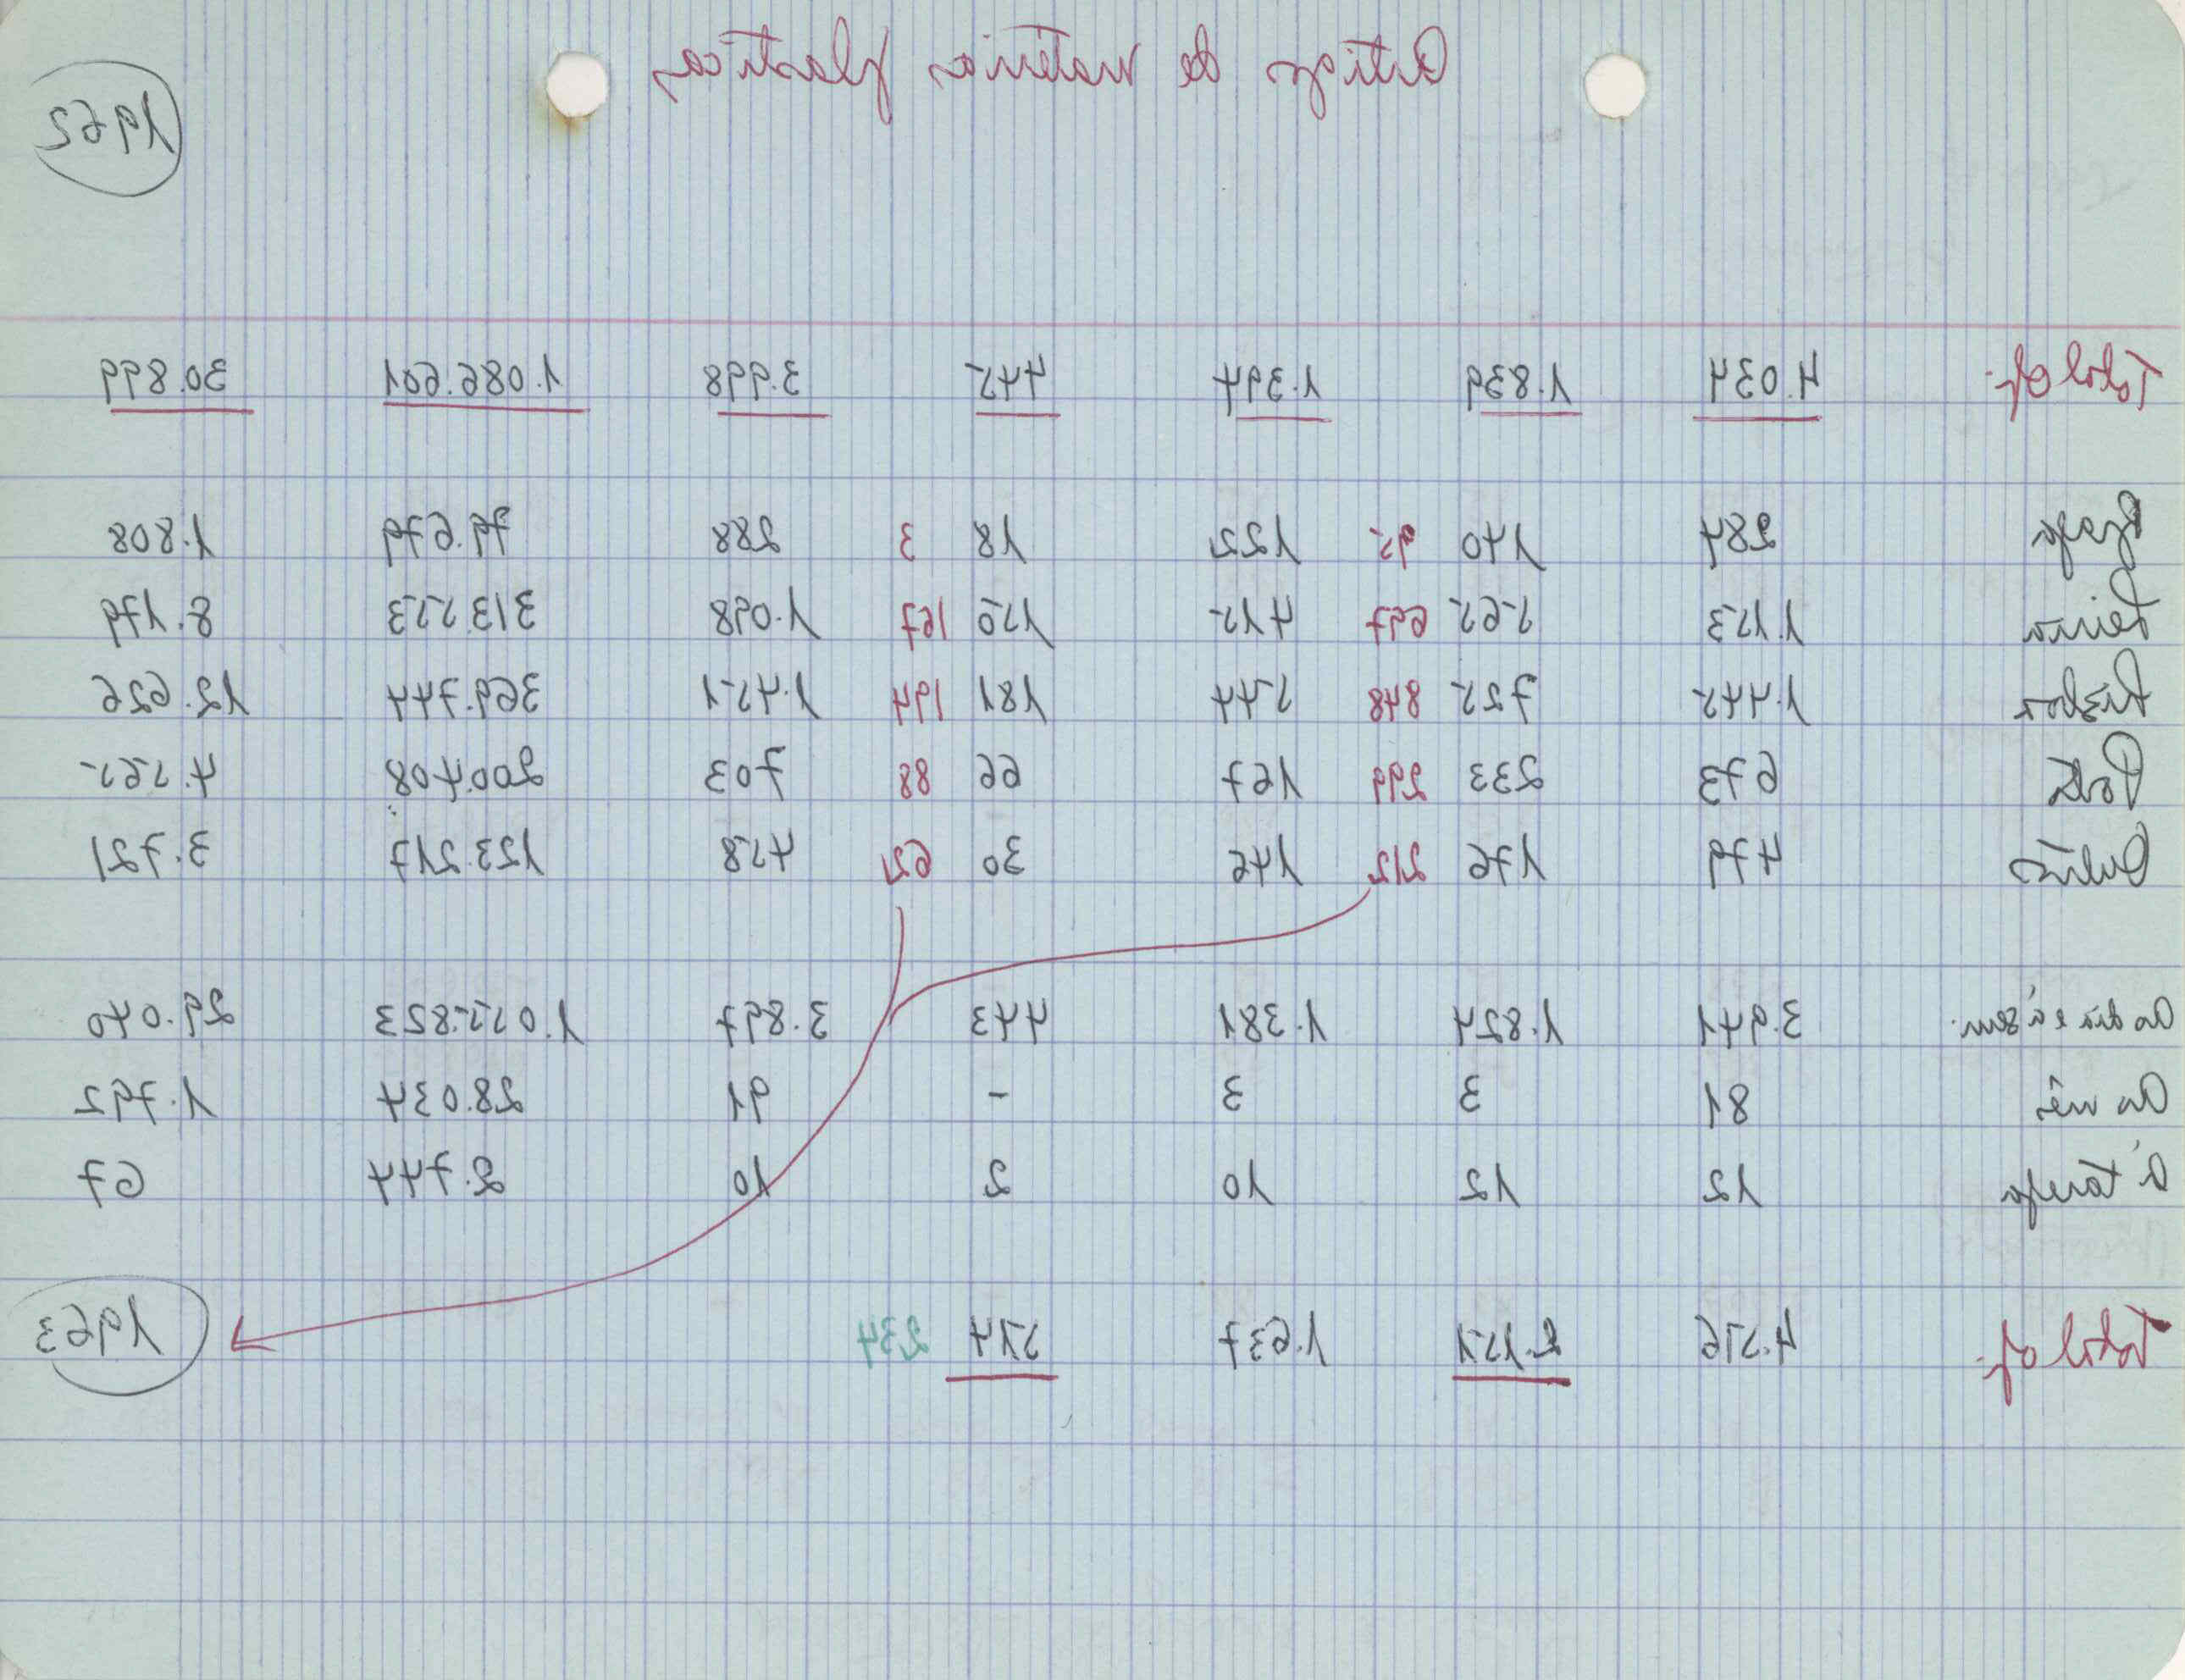 Artigos de matérias plasticas
1962
Total op. 4.034 1.839 1.394 445 3.998 1.086.601 30.899
Braga 284 140 95 122 18 3 288 79.679 1.808
Leiria 1.153 565 697 415 150 167 1.098 313.553 8.179
Lisboa 1.445 725 848 544 181 194 1.451 369.744 12.626
Porto 673 233 299 167 66 88 703 200.408 4.565
Outros 479 176 212 146 30 62 458 123.217 3.721
Ao dia e à sem. 3.941 1.824 1.381 443 3.897 1.055.823 29.040
Ao mês 81 3 3 - 91 28.034 1.792
À tarefa 12 12 10 2 10 2.744 67
Total op. 4.576 2.151 1.637 514 234 1963